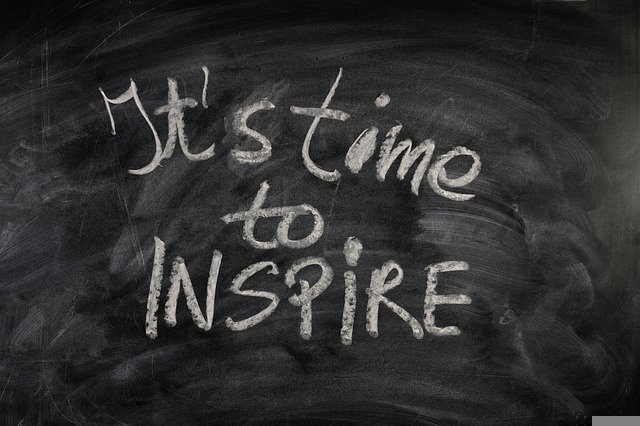 It's time
to
INSPiRE